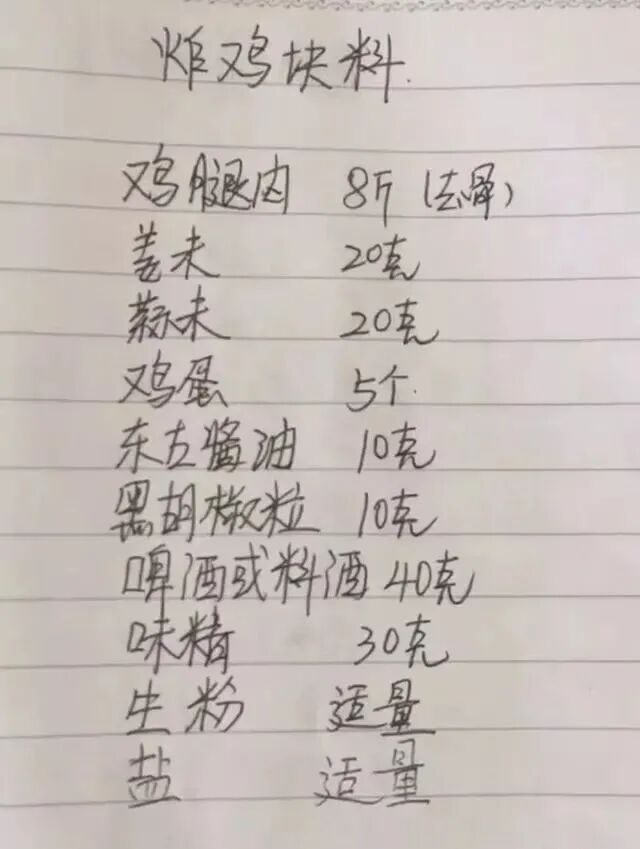 炸鸡块料.
鸡腿肉 8斤 (去骨)
姜末 20克
蒜末 20克
鸡蛋 5个
东古酱油 10克
黑胡椒粒 10克
啤酒或料酒 40克
味精 30克
生粉 适量
盐 适量